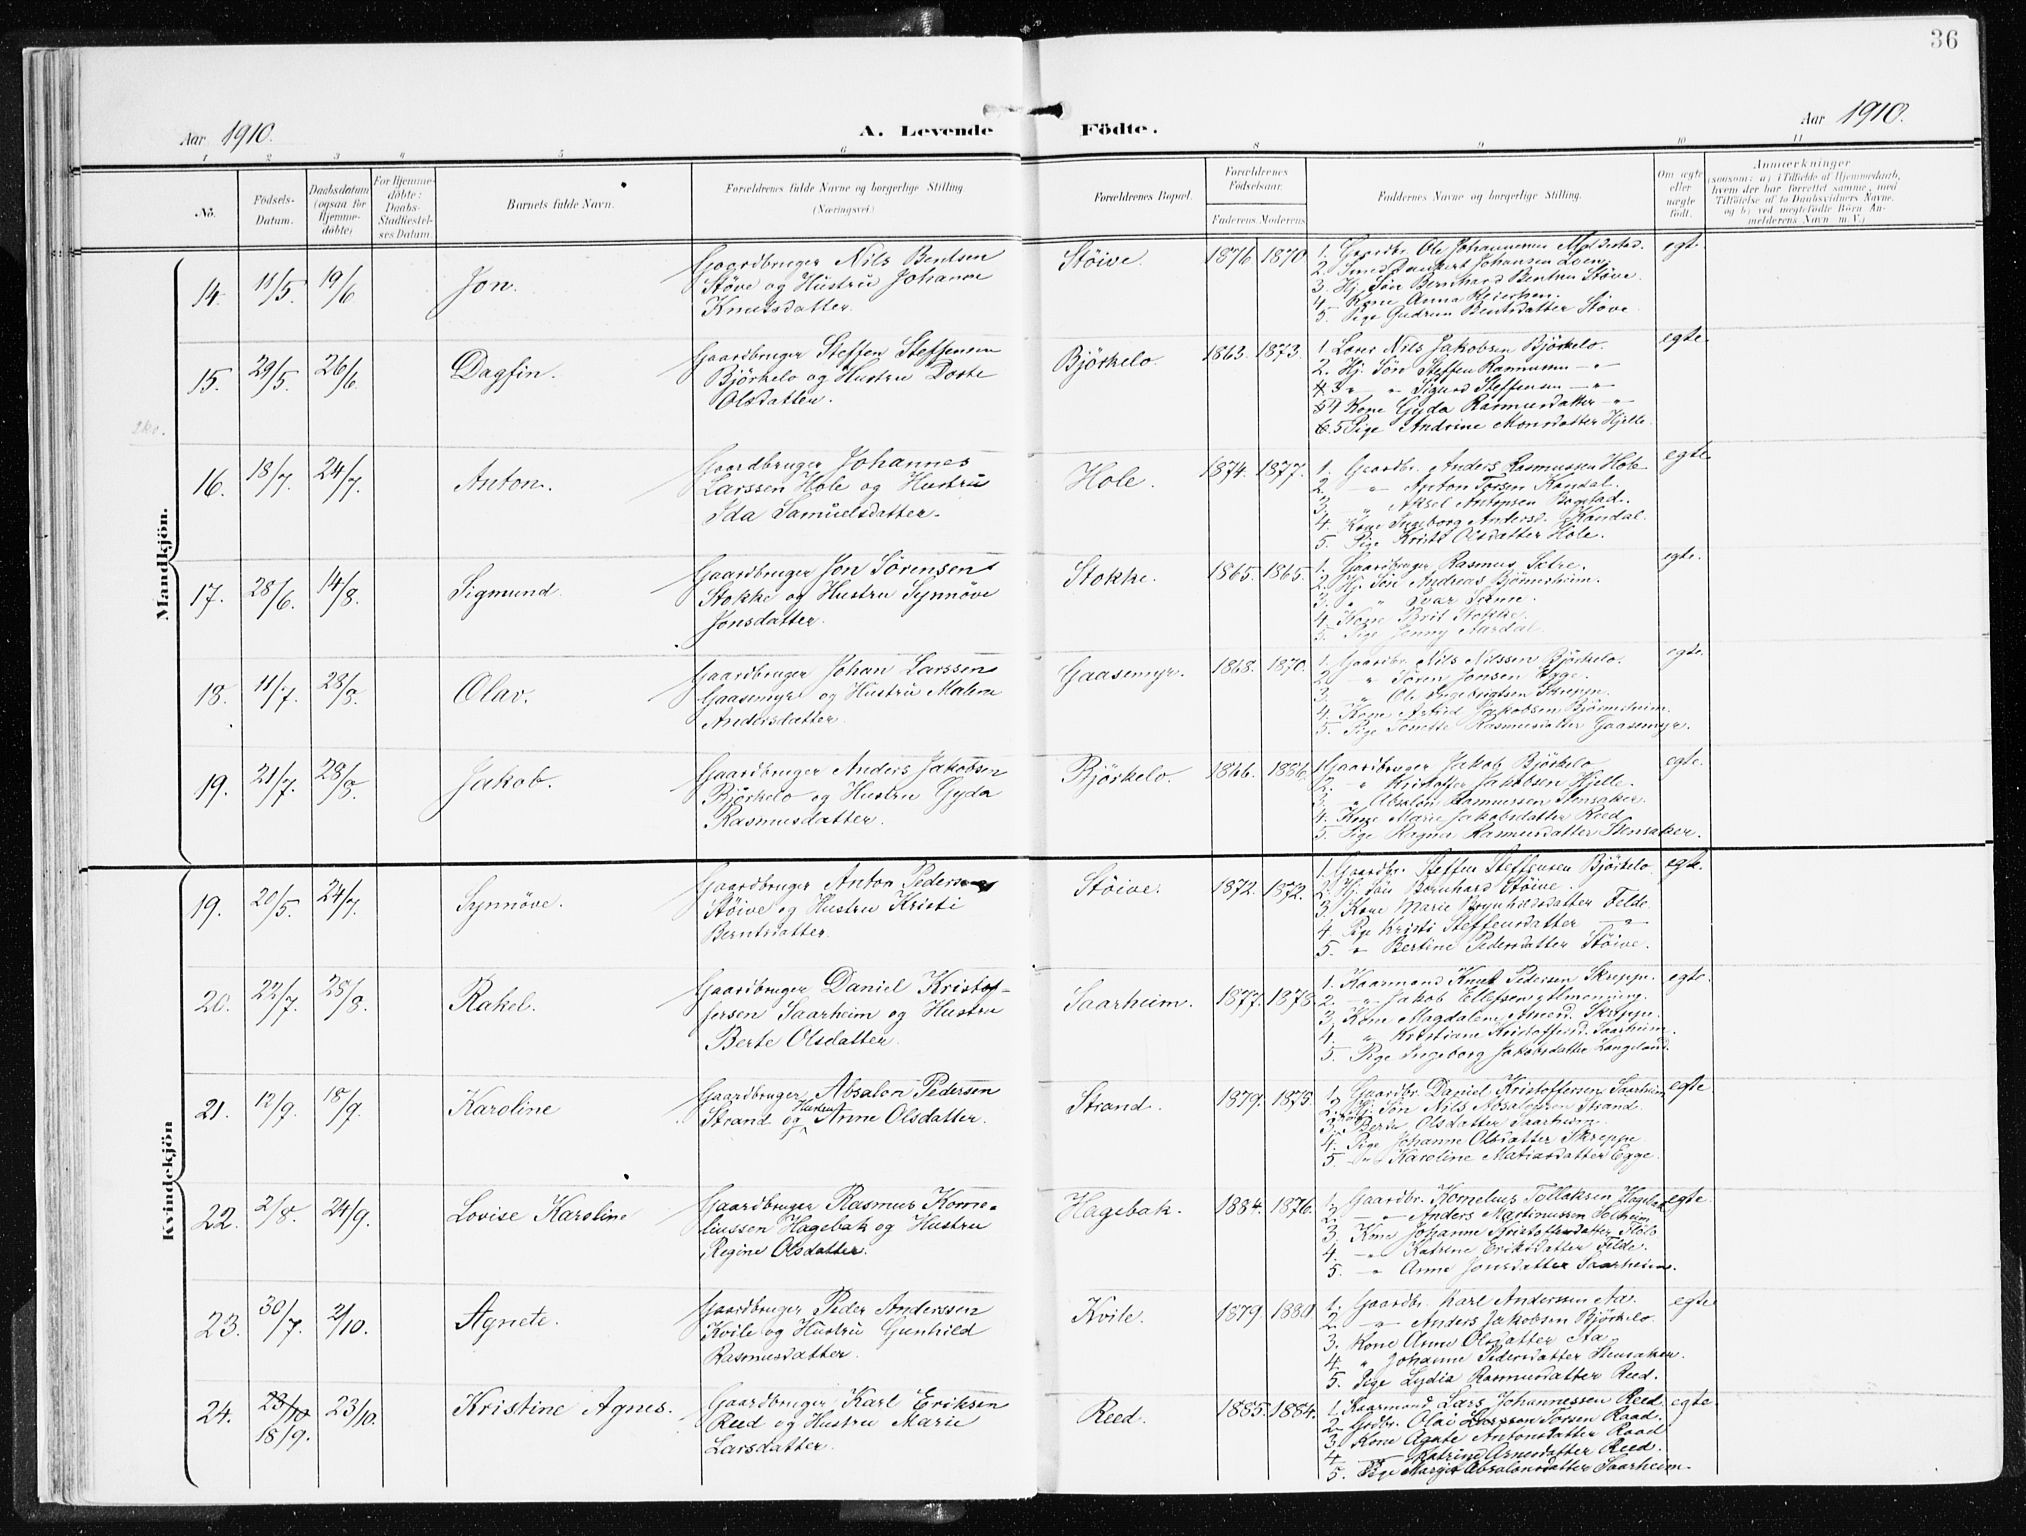 36
Aar 1910.
A. Levende Födte.
Aar 1910.
1 2 3 4 5 6 8 9 10 11
No.
Födsels-
Datum.
Daabsdatum
(ogsaa for
Hjemme-
döbte)
For Hjemme-
döbte:
Daabs-
Stadfæstel-
ses Datum.
Barnets fulde Navn.
Forældrenes fulde Navne og borgerlige Stilling
(Næringsvei)
Forældrenes Bopæl.
Forældrenes
Födselsaar.
Faderens Moderens
Faddernes Navne og borgerlige Stilling.
Om ægte
eller
uægte
født.
Anmærkninger
(saasom: a) i Tilfælde af Hjemmedaab,
hvem der har forrettet samme, med
Tilföielse af to Daabsvidners Navne,
og b) ved uegtefödte Börn An-
melderens Navn m. V.)
Mandkjön.
14. 11/5. 19/6 Jon.
Gaardbruger Nils Bentsen
Støve og Hustru Johanne
Knutsdatter.
Støive. 1876 1870
1. Gaardbr. Ole Johannesen Moldestad
2. Smed Johansen Loen
3. Hj. Søn Bernhard Bentsen Støve.
4. Kone Anna
5. Pige Gudrun Bentsdatter Støve.
egte.
15. 29/5. 26/6. Dagfin.
Gaardbruger Steffen Steffensen
Björkelo og Hustru Dorte
Olsdatter.
Björkelo. 1863. 1873.
1. Lærer Nils Jakobsen Björkelo.
2. Hj. Søn Steffen Rasmussen — " —
3 " " Sigurd Steffensen — " —
4 Kone Gyda Rasmusdatter — " —
5 Pige Andrine Monsdatter Hjelle.
egte.
16. 18/7. 24/7. Anton.
Gaardbruger Johannes
Larssen Hole og Hustru
Ida Samuelsdatter.
Hole. 1874. 1877.
1. Gaardbr. Anders Rasmussen Hole
2. — " — Anton Torsen Kandal.
3. " Aksel Antonsen Bogstad.
4. Kone Ingeborg Andersd. Kandal.
5. Pige Kristi Olsdatter Hole.
egte
17. 28/6. 14/8. Sigmund.
Gaardbruger Jon Sörensen
Stokke og Hustru Synnöve
Jonsdatter.
Stokke. 1865. 1865.
1. Gaardbruger Rasmus Setre.
2. Hj. Søn Andreas Björnsheim.
3. " " Ivar
4. Kone Brit Stokke.
5. Pige Jenny Aardal.
egte.
18. 11/7. 28/8. Olav.
Gaardbruger Johan Larssen
Gaasemyr og Hustru Malene
Andersdatter.
Gaasemyr. 1868. 1870.
1. Gaardbr. Nils Nilssen Björkelo.
2. " Sören Jonsen Egge.
3. " Ole Ingebrigtsen Skrepp.
4. Kone Astrid Jakobsen Björnsheim.
5. Pige Rasmusdatter Gaasemyr.
egte.
19. 21/7. 28/8. Jakob.
Gaardbruger Anders Jakobsen
Björkelo og Hustru Gyda
Rasmusdatter.
Björkelo. 1866. 1886.
1. Gaardbruger Jakob Björkelo
2. — " Kristoffer Jakobsen Hjelle.
3. " Absalon Rasmussen
4. Kone Marie Jakobsdatter Reed
5. Pige Ragna Rasmusdatter
egte.
Kvindekjön
19. 20/5. 24/7. Synnöve.
Gaardbruger Anton Pedersen
Støive og Hustru Kristi
Berntsdatter.
Støive. 1872. 1872.
1. Gaardbr. Steffen Steffensen Björkelo
2. Hj. Søn Bernhard Støive.
3. Kone Marie Brynhildsdatter Felde.
4. Pige Kristi Steffensdatter — " —
5. " Bertine Pedersdatter Støive.
egte.
20. 22/7. 28/8. Rakel.
Gaardbruger Daniel Kristof-
fersen Saarheim og Hustru
Berte Olsdatter.
Saarheim. 1877. 1878.
1. Kaarmand Knut Pedersen Skreppe.
2. — " — Jakob Ellefsen
3. Kone Magdalene Skreppe.
4. " Kristiane Kristoffersd. Saarheim.
5. Pige Ingeborg Jakobsdatter Langeland.
egte.
21. 12/9. 18/9. Karoline
Gaardbruger Absalon Pedersen
Strand og Hustru Anne Olsdatter.
Strand. 1879. 1875.
1. Gaardbr. Daniel Kristoffersen Saarheim
2. Hj. Søn Nils Absalonsen Strand.
3. Kone Berte Olsdatter Saarheim.
4. Pige Johanne Olsdatter Skreppe.
5. " Karoline Matiasdatter Egge.
egte
22. 2/8. 24/9. Lovise Karoline
Gaardbruger Rasmus Korne-
liussen Hagebak og Hustru
Regine Olsdatter.
Hagebak. 1884. 1876.
1. Gaardbr. Kornelius Tollaksen Hagebak
2. — " — Anders Martinussen Holheim
3. Kone Johanne Kristoffersdatter
4. — " Katrine Eriksdatter Felde.
5. — " Anne Jonsdatter Saarheim.
egte.
23. 30/7. 2/10. Agnete.
Gaardbruger Peder Anderssen
Kvile og Hustru Gunhild
Rasmusdatter.
Kvile. 1879. 1880.
1. Gaardbr. Karl Andersen Aa.
2. — " — Anders Jakobsen Björkelo.
3. Kone Anne Olsdatter Aa
4. " Johanne Pedersdatter
5. Pige Lydia Rasmusdatter Reed.
egte
24. 23/10 18/9. 23/10. Kristine Agnes.
Gaardbruger Karl Eriksen
Reed og Hustru Marie
Larsdatter.
Reed. 1885. 1884.
1. Kaarmand Lars Johannessen Reed
2. Gdbr. Olai Torsen Raad.
3. Kone Agate Antonsdatter Raad
4. — Katrine Arnesdatter Reed.
5. Pige Margit Absalonsdatter Saarheim.
egte.